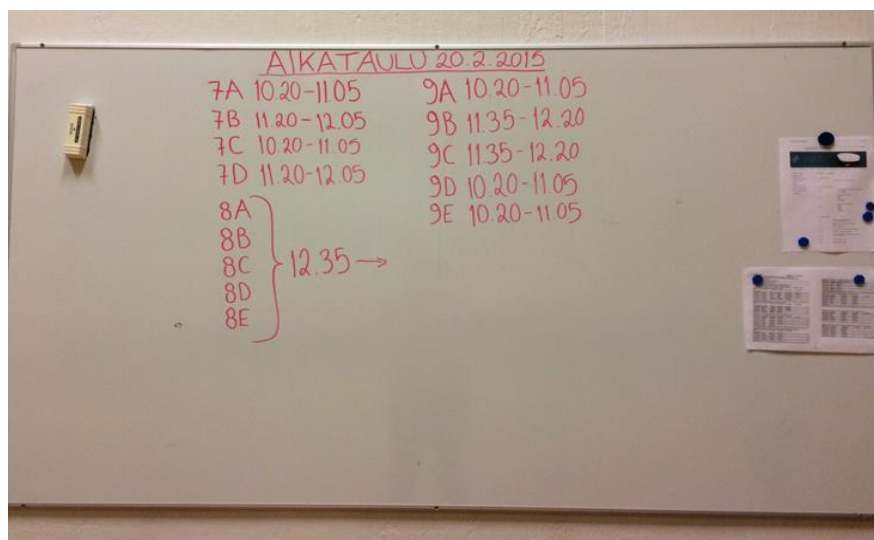 AIKATAULU 20.2.2015
7A 10.20-11.05
7B 11.20-12.05
7C 10.20-11.05
7D 11.20-12.05
8A
8B
8C
8D
8E
12.35→
9A 10.20-11.05
9B 11.35-12.20
9C 11.35-12.20
9D 10.20-11.05
9E 10.20-11.05